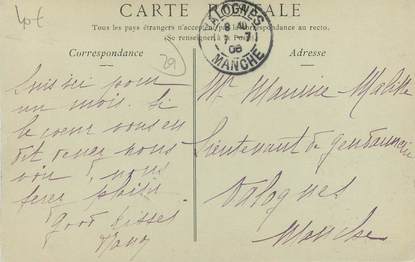 40€
CARTE POSTALE
Tous les pays étrangers n'acceptent pas la correspondance au recto.
(Se renseigner à la Poste)
VALOGNES
8 AU
7 -7
08
MANCHE
29
Correspondance
Suis ici pour
un mois. Si
le cœur vous en
dit venez nous
voir, nous
ferez plaisir
good kisses
Adresse
Mr Maurice
Lieutenant de gendarmerie
Valognes
Manche